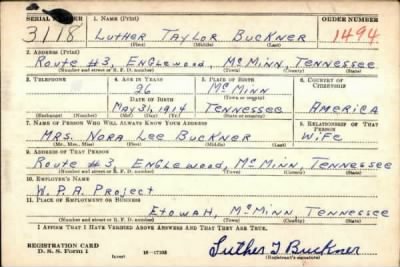 SERIAL NUMBER 1. NAME (Print) ORDER NUMBER
3118 LUTHER TAYLOR BUCKNER 1494
(First) (Middle) (Last)
2. ADDRESS (Print)
Route #3, Englewood, McMinn, Tennessee
(Number and street or R. F. D. number) (Town) (County) (State)
3. TELEPHONE 4. AGE IN YEARS 5. PLACE OF BIRTH 6. COUNTRY OF CITIZENSHIP
26 McMinn
(Town or county)
DATE OF BIRTH
May 31, 1914 Tennessee America
(Exchange) (Number) (Mo.) (Day) (Yr.) (State or country)
7. NAME OF PERSON WHO WILL ALWAYS KNOW YOUR ADDRESS 8. RELATIONSHIP OF THAT PERSON
MRS. Nora Lee Buckner Wife
(Mr., Mrs., Miss) (First) (Middle) (Last)
9. ADDRESS OF THAT PERSON
Route #3, Englewood, McMinn, Tennessee
(Number and street or R. F. D. number) (Town) (County) (State)
10. EMPLOYER'S NAME
W.P.A. Project
11. PLACE OF EMPLOYMENT OR BUSINESS
Etowah, McMinn, Tennessee
(Number and street or R. F. D. number) (Town) (County) (State)
I AFFIRM THAT I HAVE VERIFIED ABOVE ANSWERS AND THAT THEY ARE TRUE.
REGISTRATION CARD
D. S. S. Form 1 (over) Luther T Buckner
(Registrant's signature)